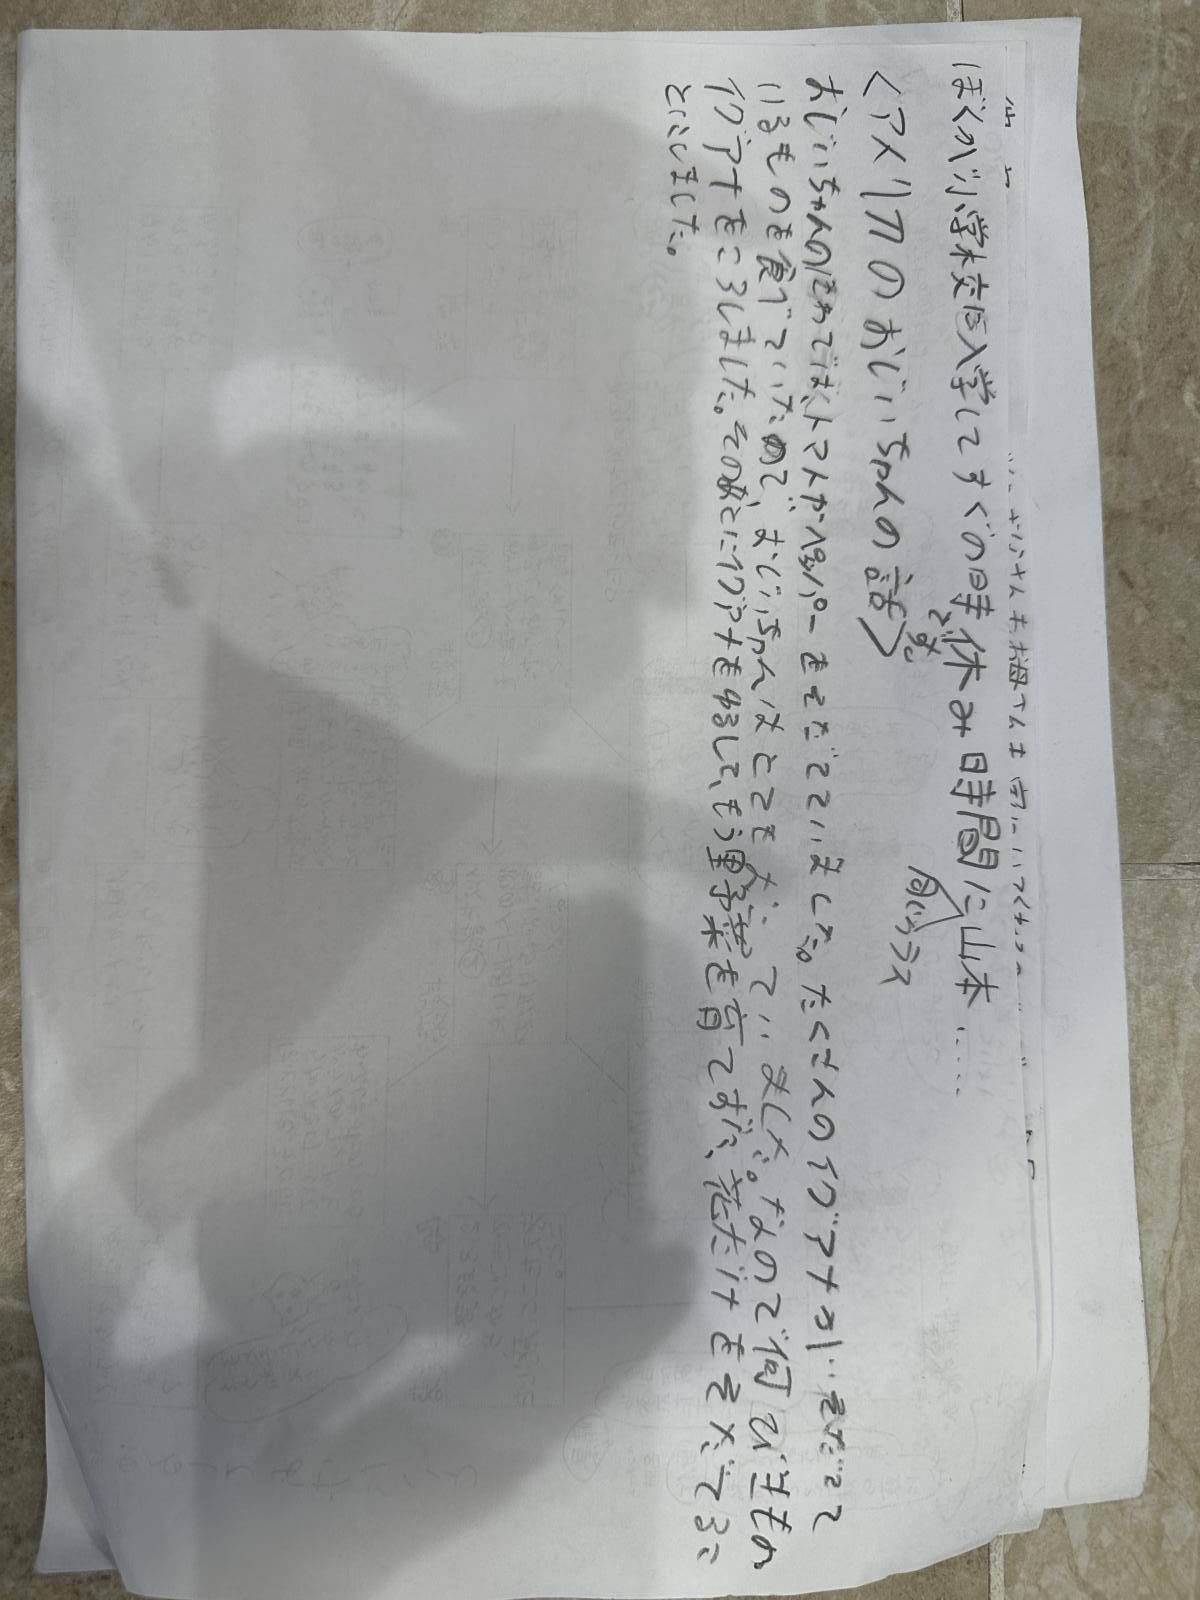 ぼくが小学校に入学してすぐの時です。休み時間に山本‥‥‥
同じクラス
<アメリカのおじいちゃんの話>
おじいちゃんのにわでは、トマトがペッパーをそだてていました。たくさんのイグアナが、そだてて
いるものを食べていたので、おじいちゃんはとても ていました。なので何びきもの
イグアナをころしました。そのあとにイグアナをゆるして、もう野菜を育てずに、花だけをそだてるこ
とにしました。